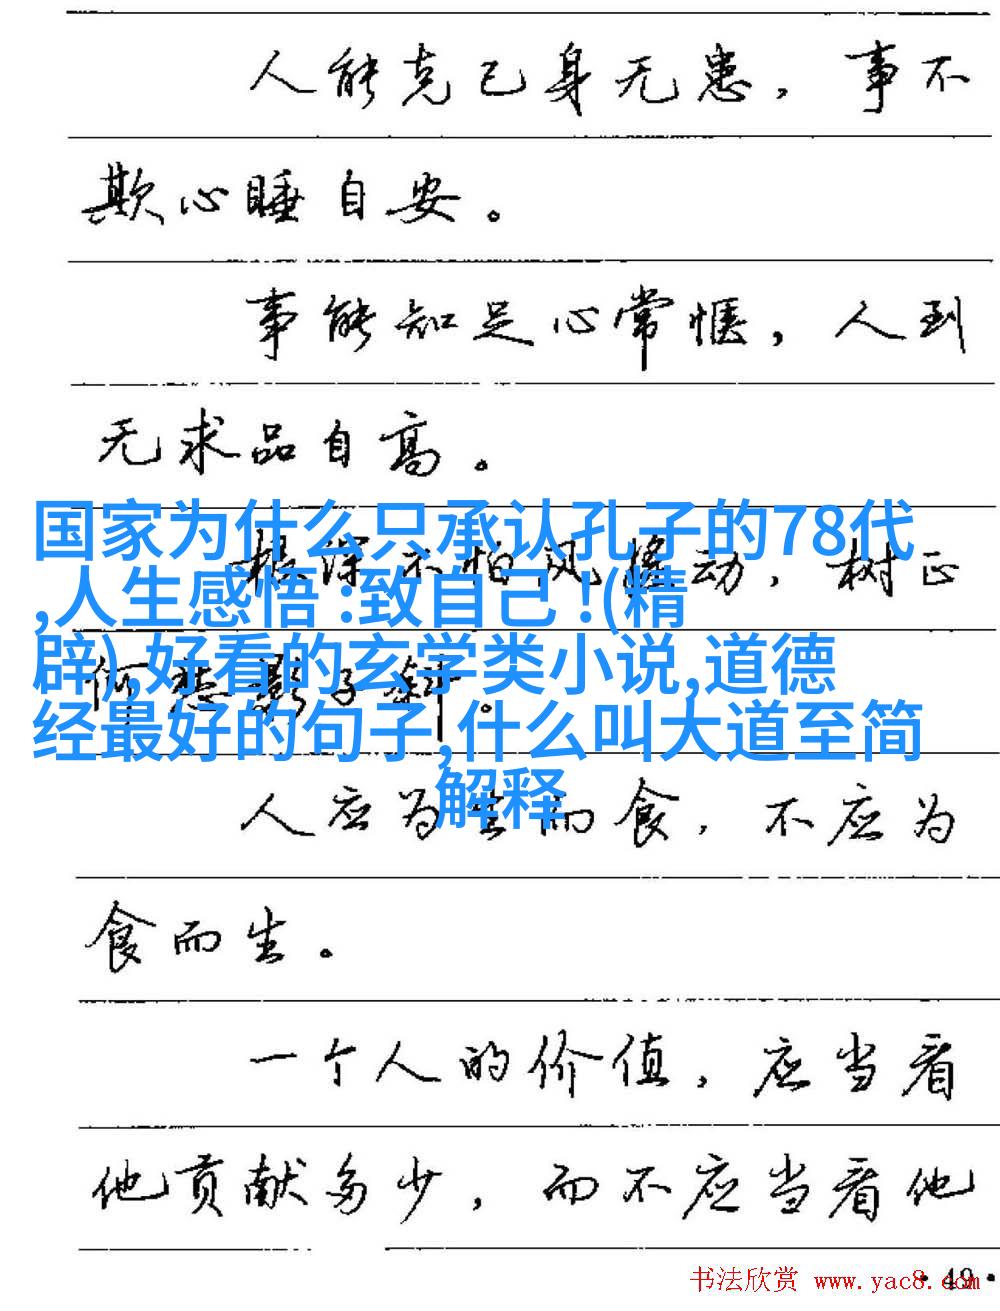 人能克己身无患，事不
欺心睡自安。
事能知足心常惬，人到
无求品自高。
国家为什么只承认孔子的78代
根深不怕风摇动，树正
,人生感悟 :致自己 !(精
辟),好看的玄学类小说,道德
何愁影子斜。
经最好的句子,什么叫大道至简
解释
人应为生而食，不应为
食而生。
一个人的价值，应当看
他贡献多少，而不应当看他
·49·
书法欣赏 www.yac8.com